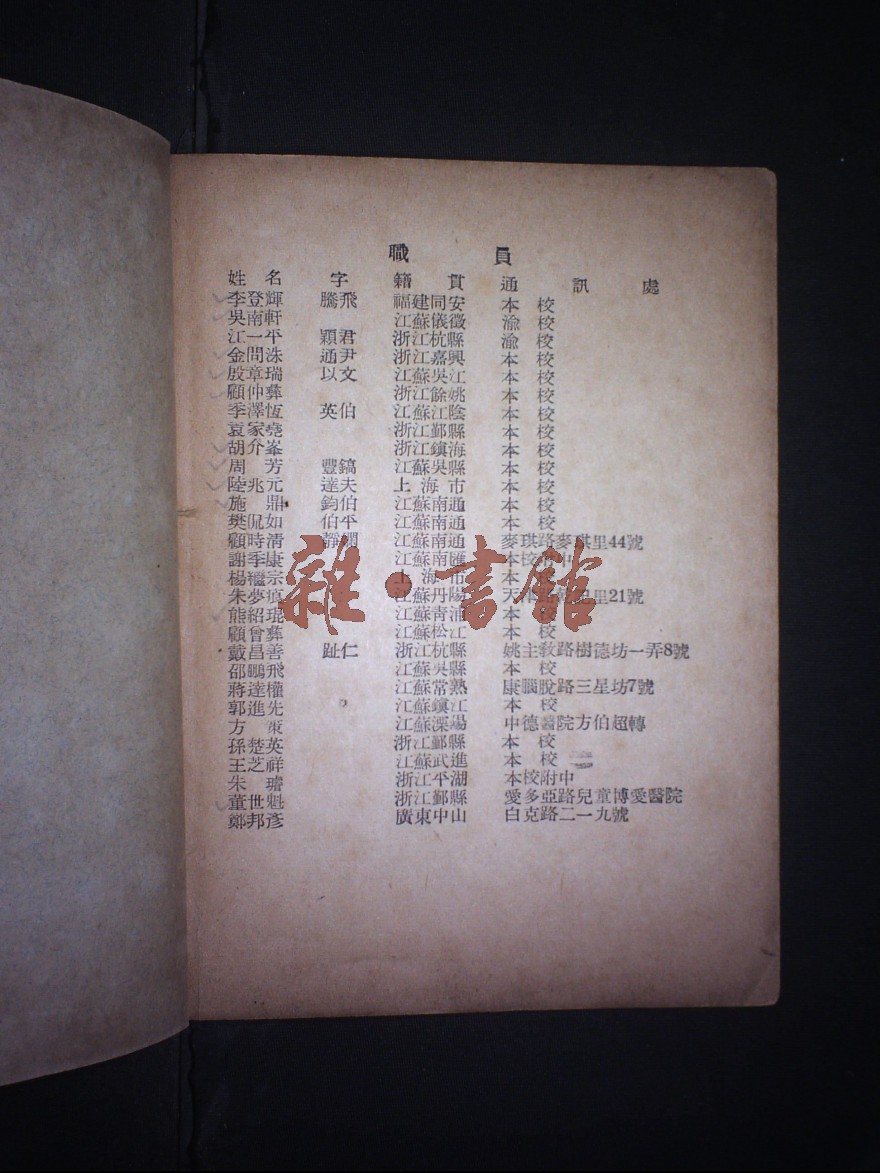 職 員
姓名 字 籍貫 通訊處
李登輝 騰飛 福建同安 本校
吳南軒 江蘇儀徵 渝校
江一平 穎君 浙江杭縣 渝校
金問洙 通尹 浙江嘉興 本校
殷章瑞 以文 江蘇吳江 本校
顧仲彝 浙江餘姚 本校
季澤恆 英伯 江蘇江陰 本校
袁家堯 浙江鄞縣 本校
胡介峯 浙江鎮海 本校
周芳 豐鎬 江蘇吳縣 本校
陸兆元 達夫 上海市 本校
施鼎 鈞伯 江蘇南通 本校
樊侃如 伯平 江蘇南通 本校
顧時清 靜瀾 江蘇南通 麥琪路麥琪里44號
謝季康 江蘇南匯 本校附中
楊繼宗 上海市 本
朱夢 江蘇丹陽 天 里21號
熊紹琨 江蘇青浦 本校
顧曾彝 江蘇松江 本校
戴昌善 趾仁 浙江杭縣 姚主敎路樹德坊一弄8號
邵鵬飛 江蘇吳縣 本校
蔣達權 江蘇常熟 康腦脫路三星坊7號
郭進先 江蘇鎮江 本校
方 江蘇溧陽 中德醫院方伯超轉
孫楚英 浙江鄞縣 本校
王芝祥 江蘇武進 本校
朱璿 浙江平湖 本校附中
董世魁 浙江鄞縣 愛多亞路兒童博愛醫院
鄭邦彥 廣東中山 白克路二一九號
雜·書館